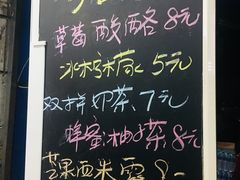 草莓酸酪8元
冰柠荷5元
双拼奶茶7元
蜂蜜柚子茶8元
芒果西米露8